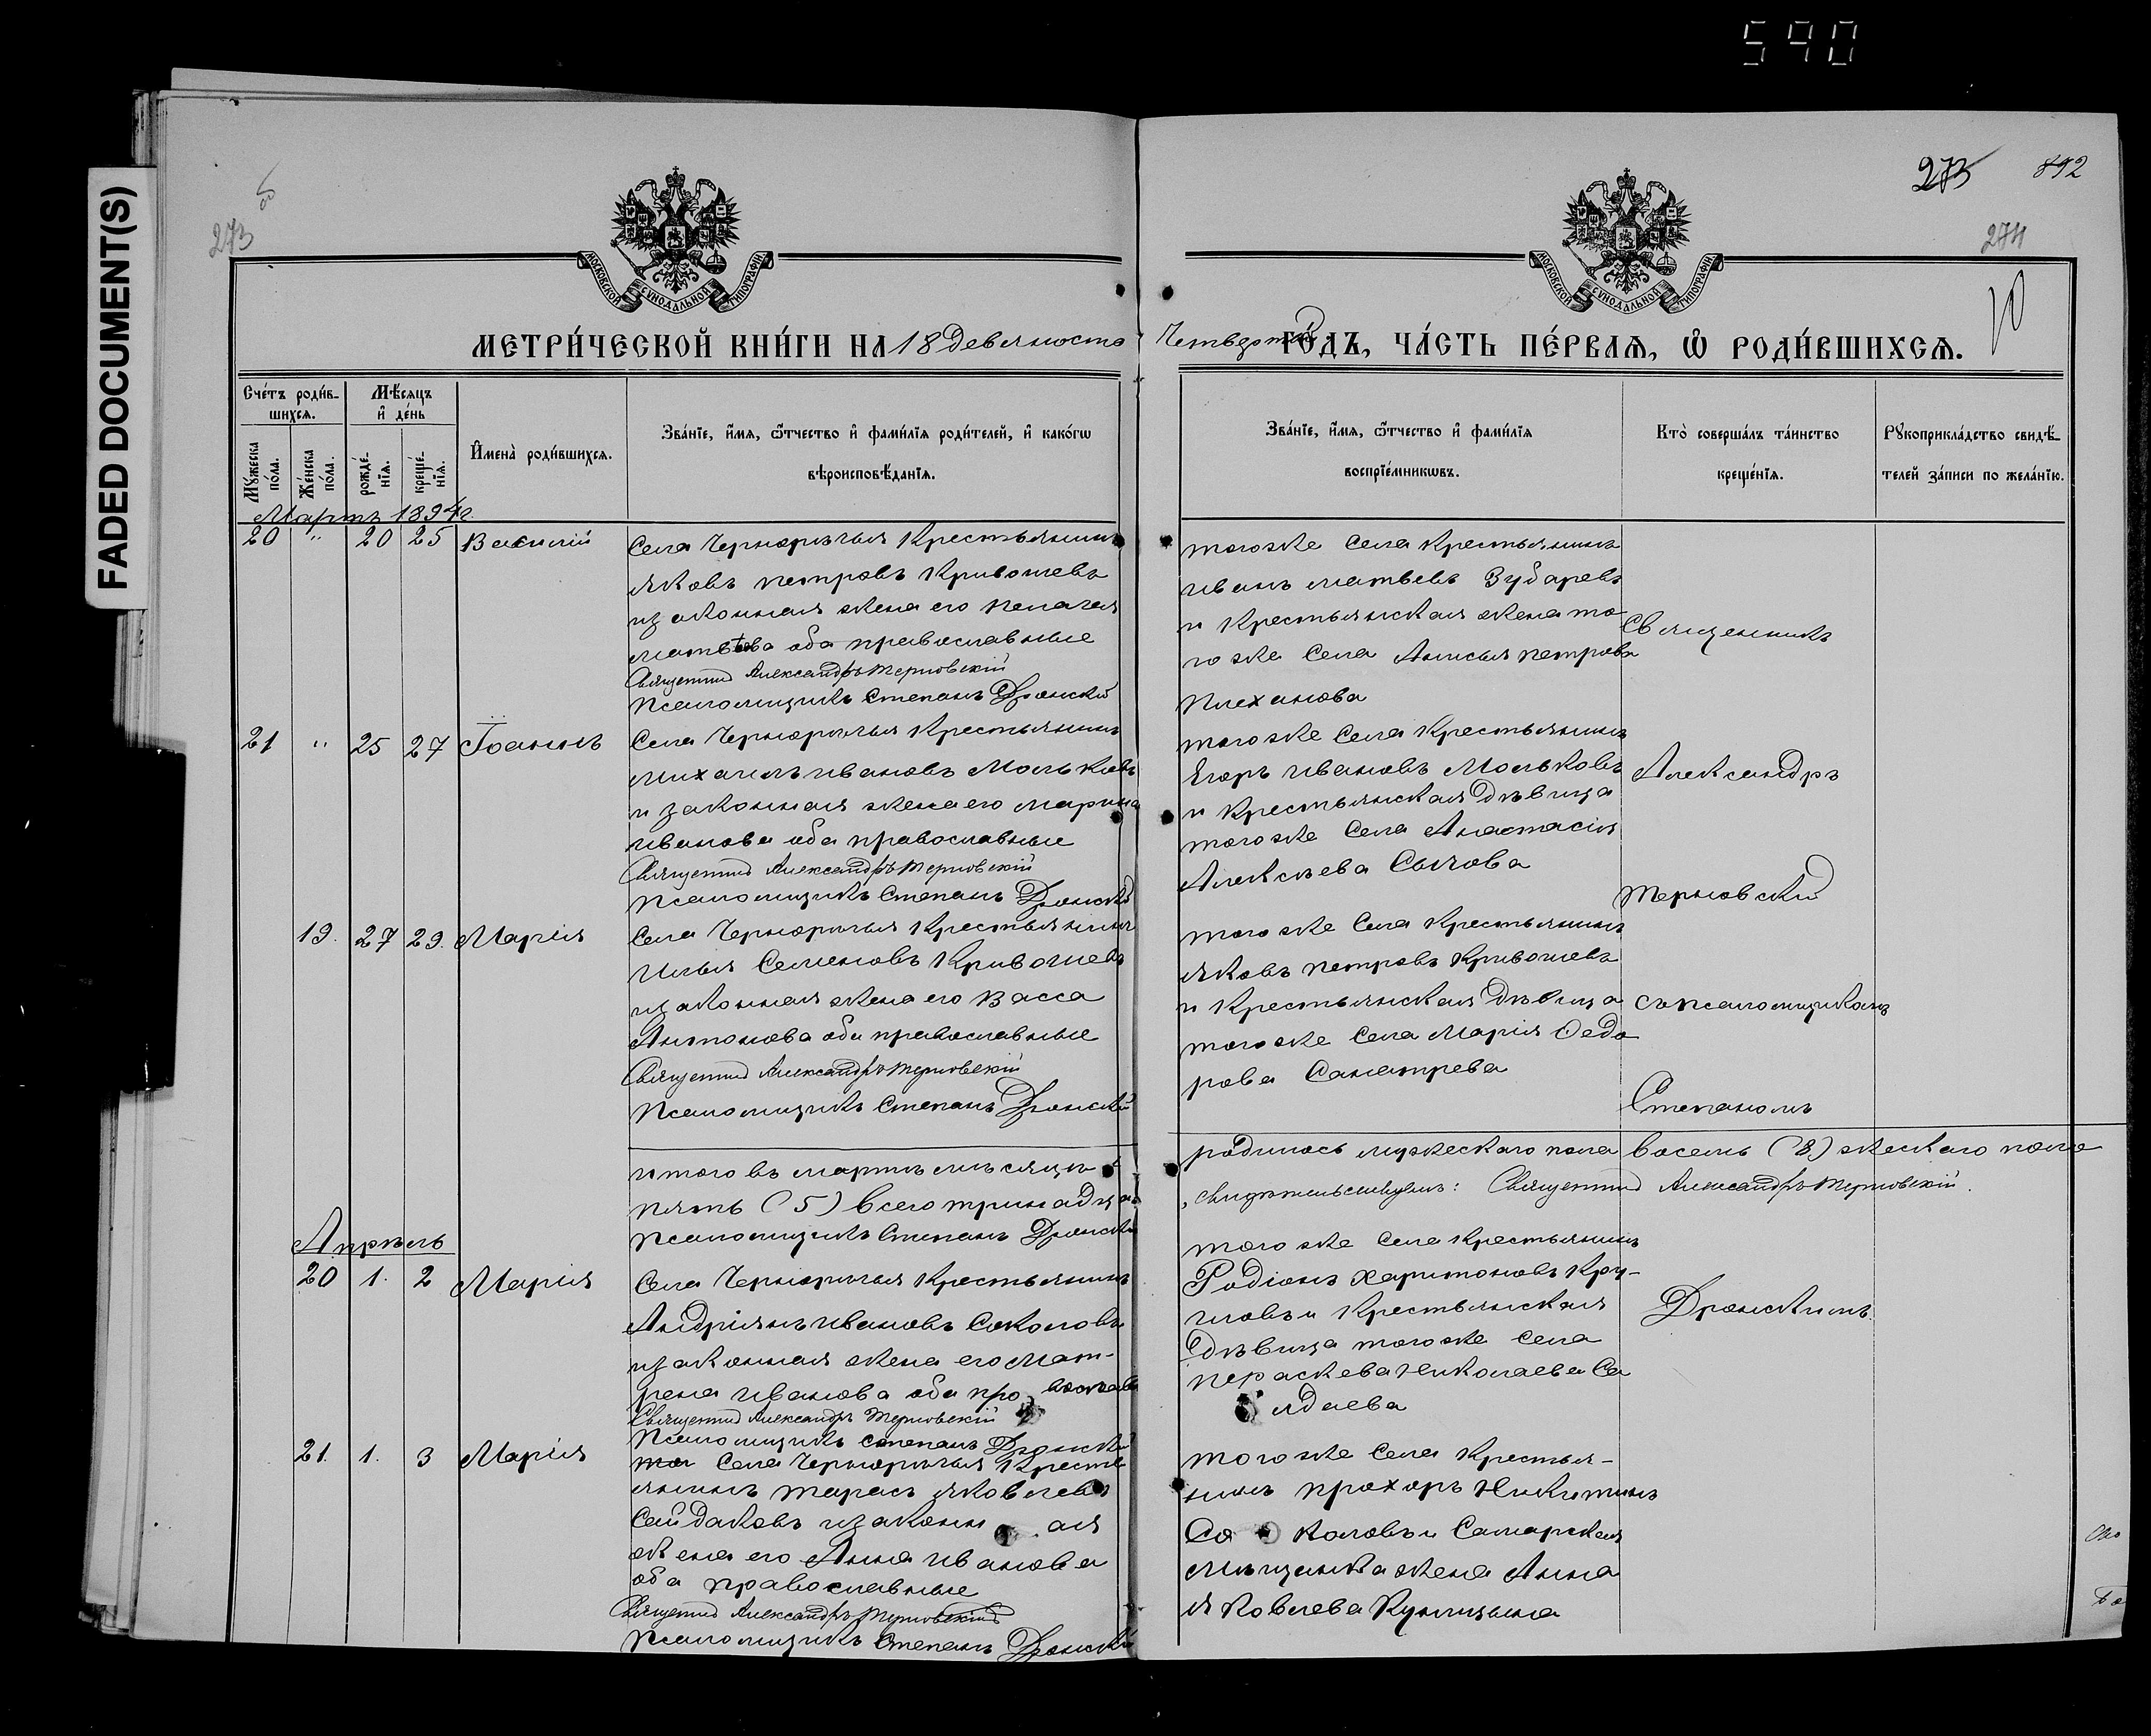 590
FADED DOCUMENT(S)
273
273 892
274
10
МОСКОВСКОЙ СѴНОДАЛЬНОЙ ТИПОГРАФІИ
МОСКОВСКОЙ СѴНОДАЛЬНОЙ ТИПОГРАФІИ
МЕТРИ́ЧЕСКОЙ КНИ́ГИ НА 18 Девяносто Четвертый ГО́ДЪ, ЧА́СТЬ ПЕ́РВАѦ, Ѡ҆ РОДИ́ВШИХСѦ.
Сче́тъ роди́в-
шихсѧ.
Мѣ́сѧцъ
и҆ де́нь
Мꙋ́жеска
по́ла.
Же́нска
по́ла.
рожде́-
нїѧ.
креще́-
нїѧ.
И҆мена̀ роди́вшихсѧ.
Зва́нїе, и҆́мѧ, ѻ҆́тчество и҆ фами́лїѧ роди́телей, и҆ како́гѡ
вѣроисповѣ́данїѧ.
Зва́нїе, и҆́мѧ, ѻ҆́тчество и҆ фами́лїѧ
воспрїе́мникѡвъ.
Кто̀ соверша́лъ та́инство
креще́нїѧ.
Рꙋкоприкла́дство свидѣ́-
телей за́писи по жела́нїю.
Мартъ 1894 г.
20 " 20 25 Василій
Села Чернорѣчья Крестьянинъ
Яковъ Петровъ Кривошевъ
и законная жена его Пелагея
Матвѣева оба православные
Священникъ Александръ Терновскій
Псаломщикъ Степанъ Дронскій
того же Села Крестьянинъ
Иванъ Матвѣевъ Зубаревъ
и Крестьянская жена то
го же Села Анисья Петрова
Плеханова
Священникъ
21 " 25 27 Іоаннъ
Села Чернорѣчья Крестьянинъ
Михаилъ Ивановъ Мольковъ
и законная жена его Марина
Иванова оба православные
Священникъ Александръ Терновскій
Псаломщикъ Степанъ Дронскій
того же Села Крестьянинъ
Егоръ Ивановъ Мольковъ
и Крестьянская Дѣвица
того же Села Анастасія
Алексѣева Сычова
Александръ
Терновскій
19. 27 29. Марія
Села Чернорѣчья Крестьянинъ
Илья Семеновъ Кривошевъ
и законная жена его Васса
Антонова оба православные
Священникъ Александръ Терновскій
Псаломщикъ Степанъ Дронскій
того же Села Крестьянинъ
Яковъ Петровъ Кривошевъ
и Крестьянская Дѣвица
того же Села Марія Ѳедо
рова
съ псаломщикомъ
Степаномъ
итого въ Мартѣ мѣсяцѣ родилось мужескаго пола восемь (8) женскаго пола
пять (5) всего тринадцать свидѣтельствуемъ: Священникъ Александръ Терновскій.
Псаломщикъ Степанъ Дронскій
Апрѣль
20 1. 2 Марія
Села Чернорѣчья Крестьянинъ
Андріянъ Ивановъ Соколовъ
и законная жена его Мат-
рена Иванова оба православ
Священникъ Александръ Терновскій
Псаломщикъ Степанъ Дронскій
того же Села Крестьянинъ
Родіонъ Харитоновъ Кру-
гловъ и Крестьянская
Дѣвица того же Села
Параскева Николаева
Дронскимъ.
21. 1. 3 Марія
Села Чернорѣчья Кресть
янинъ Тарасъ Яковлевъ
Сайдаковъ и законная
жена его Анна Иванова
оба православные
Священникъ Александръ Терновскій
Псаломщикъ Степанъ Дронскій
того же Села Крестья-
нинъ Прохоръ Никитинъ
Соколовъ и Самарская
Мѣщанка жена Анна
Яковлева Куницына